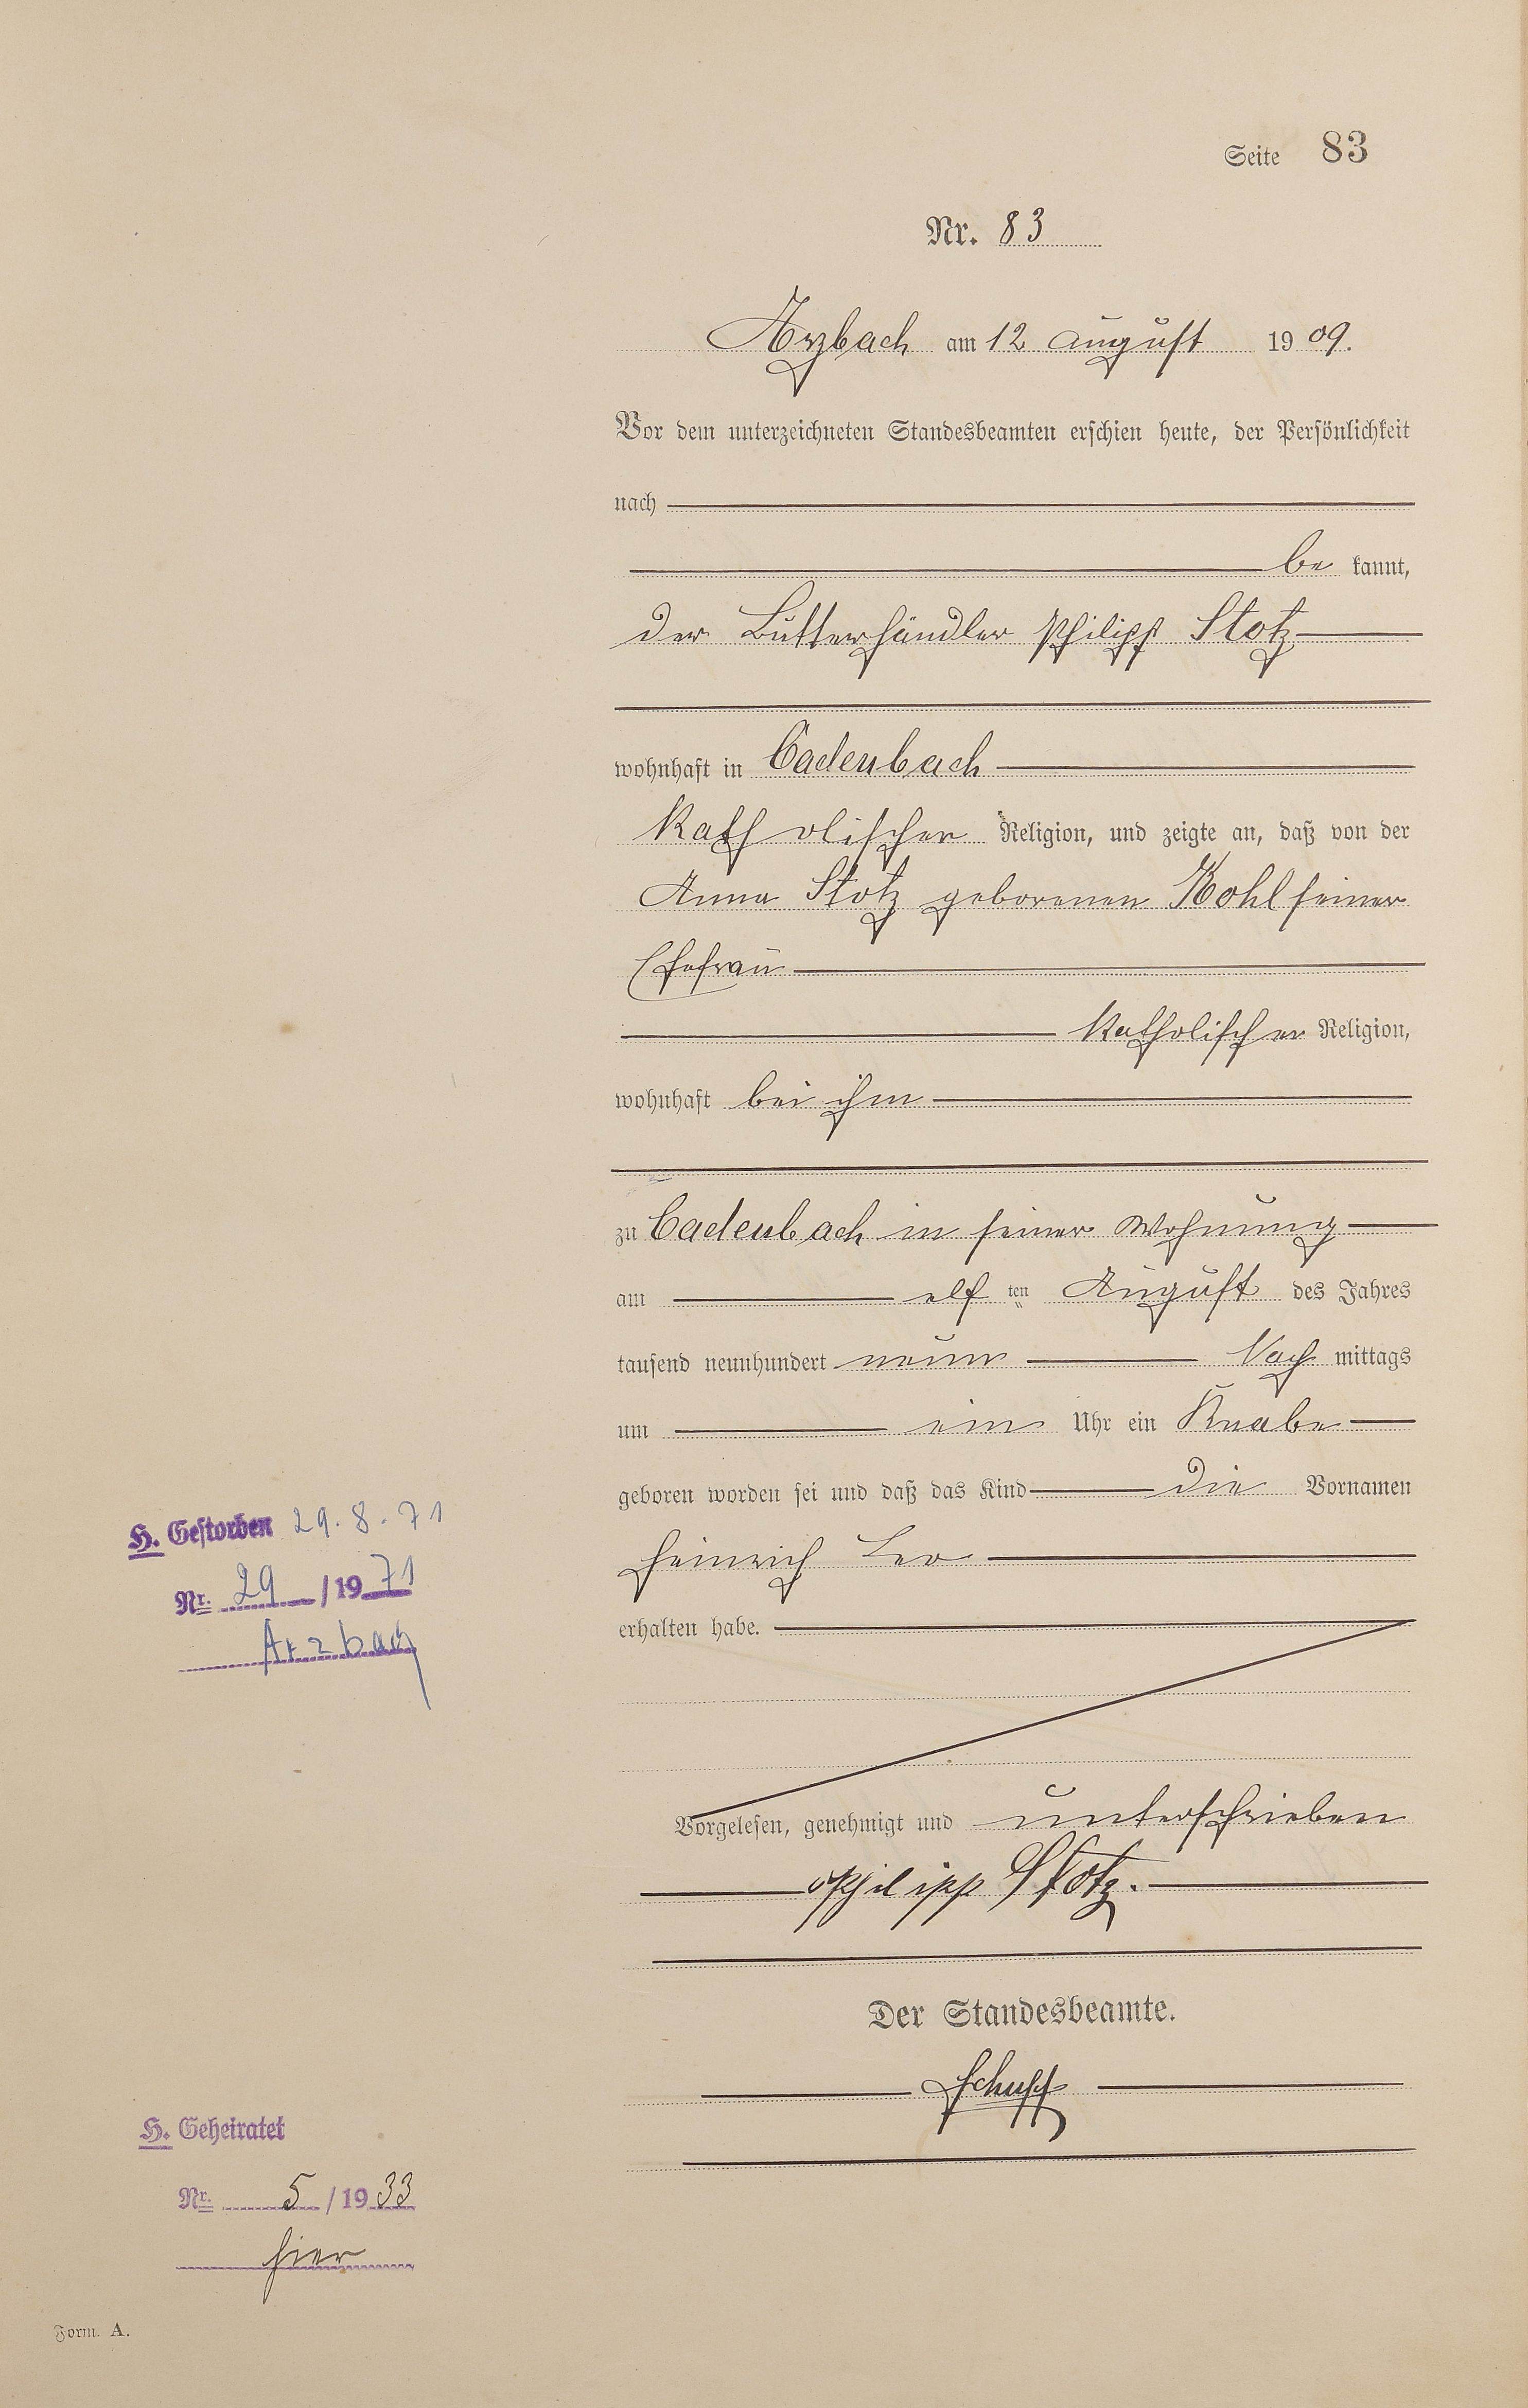 Seite 83
Nr. 83
Arzbach am 12 August 1909.
Vor dem unterzeichneten Standesbeamten erschien heute, der Persönlichkeit
nach
be kannt,
der Butterhändler Philipp Stotz
wohnhaft in Cadenbach
katholischer Religion, und zeigte an, daß von der
Anna Stotz geborenen Kohl seiner
Ehefrau
katholischer Religion,
wohnhaft bei ihm
zu Cadenbach in seiner Wohnung
am elf ten August des Jahres
tausend neunhundert neun Nach mittags
um ein Uhr ein Knabe
geboren worden sei und daß das Kind die Vornamen
Heinrich Leo
erhalten habe.
Vorgelesen, genehmigt und unterschrieben
Philipp Stotz.
Der Standesbeamte.
Schupp
H. Gestorben 29.8.71
Nr. 29 /1971
Arzbach
H. Geheiratet
Nr. 5 /1933
hier
Form. A.